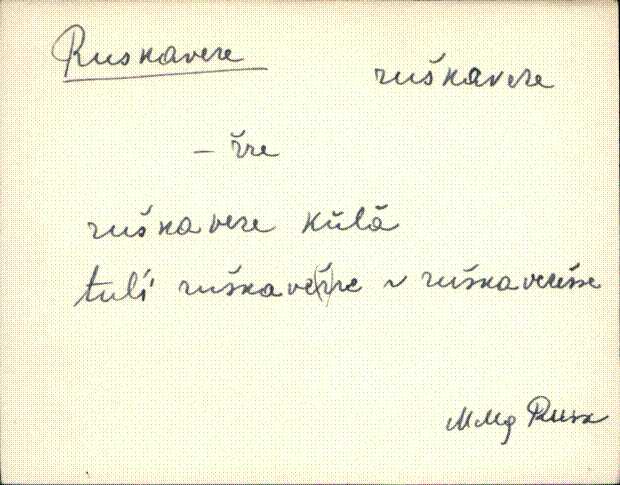 Ruskavere
ruškavere
– r̆re
ruškavere külä
tuli ruškave(r̆)re ~ ruškaverešse
MMg Rusk